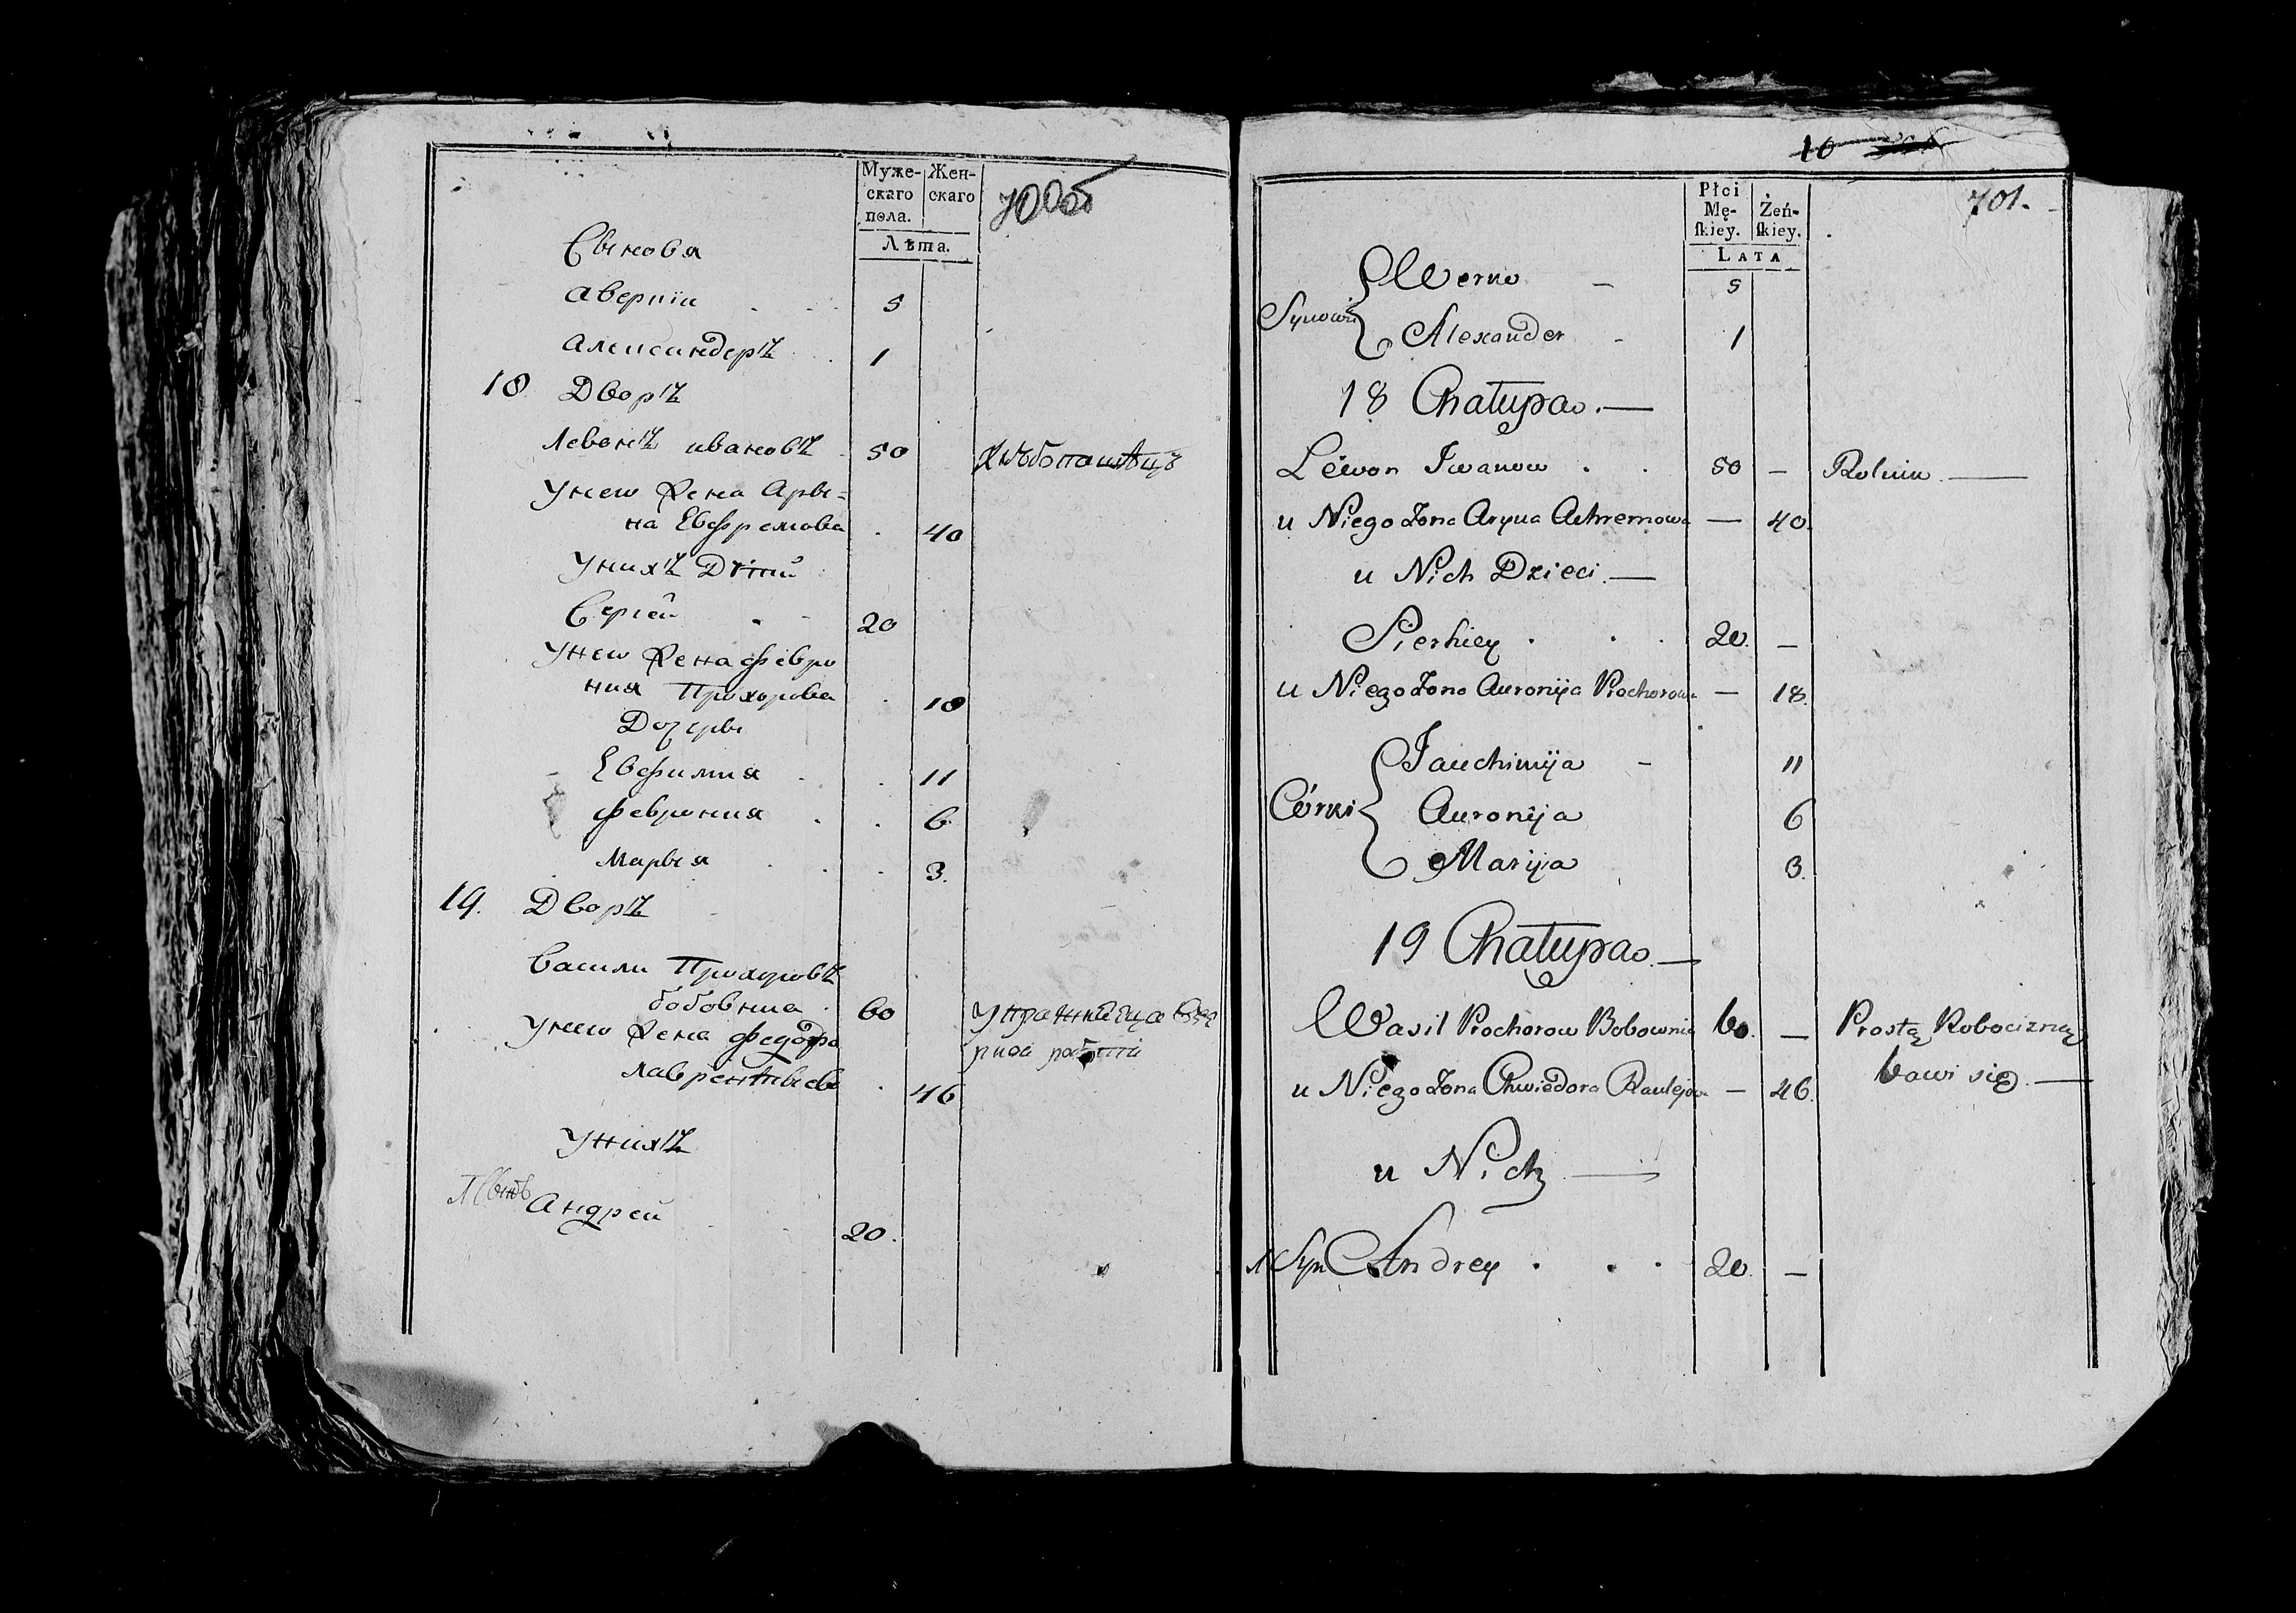 Муже- Жен-
скаго скаго
пола.
Лѣта.
700об
Сыновя
Аверкiи 5
Александеръ 1
18 Дворъ
Левонъ ивановъ 50 Хлѣбопашецъ
Унего жена Ары=
на Евфремова 40
Унихъ Дѣтей
Сергей 20
Унего жена февро
ния Прохорова 18
Дочеры
Евфимия 11
феврония 6
Марыя 3.
19. Дворъ
Васили Прохоровъ
бобовника 60
Унего жена федора
лаврентьева 46
Унихъ
Сынъ Андрей 20.
10
701.
Płci
Mę- Żeń-
ſkiey. ſkiey.
LATA
Synowie
Werko – 5
Alexander - 1
18 Chałupa. —
Lewon Iwanow . . 50 – Rolnik —
u Niego Żona Aryna Achremowa — 40.
u Nich Dzieci. —
Sierhiey . . . 20. –
u Niego Żona Auronija Prochorowa – 18.
Córki
Jauchimija - 11
Auronija 6
Marija 3.
19 Chałupa. —
Wasil Prochorow Bobownik 60. — Prostą Robocizną
bawi się. —
u Niego Żona Chwiedora Raulejowa – 46.
u Nich —
1 Syn Andrey . . . 20. –